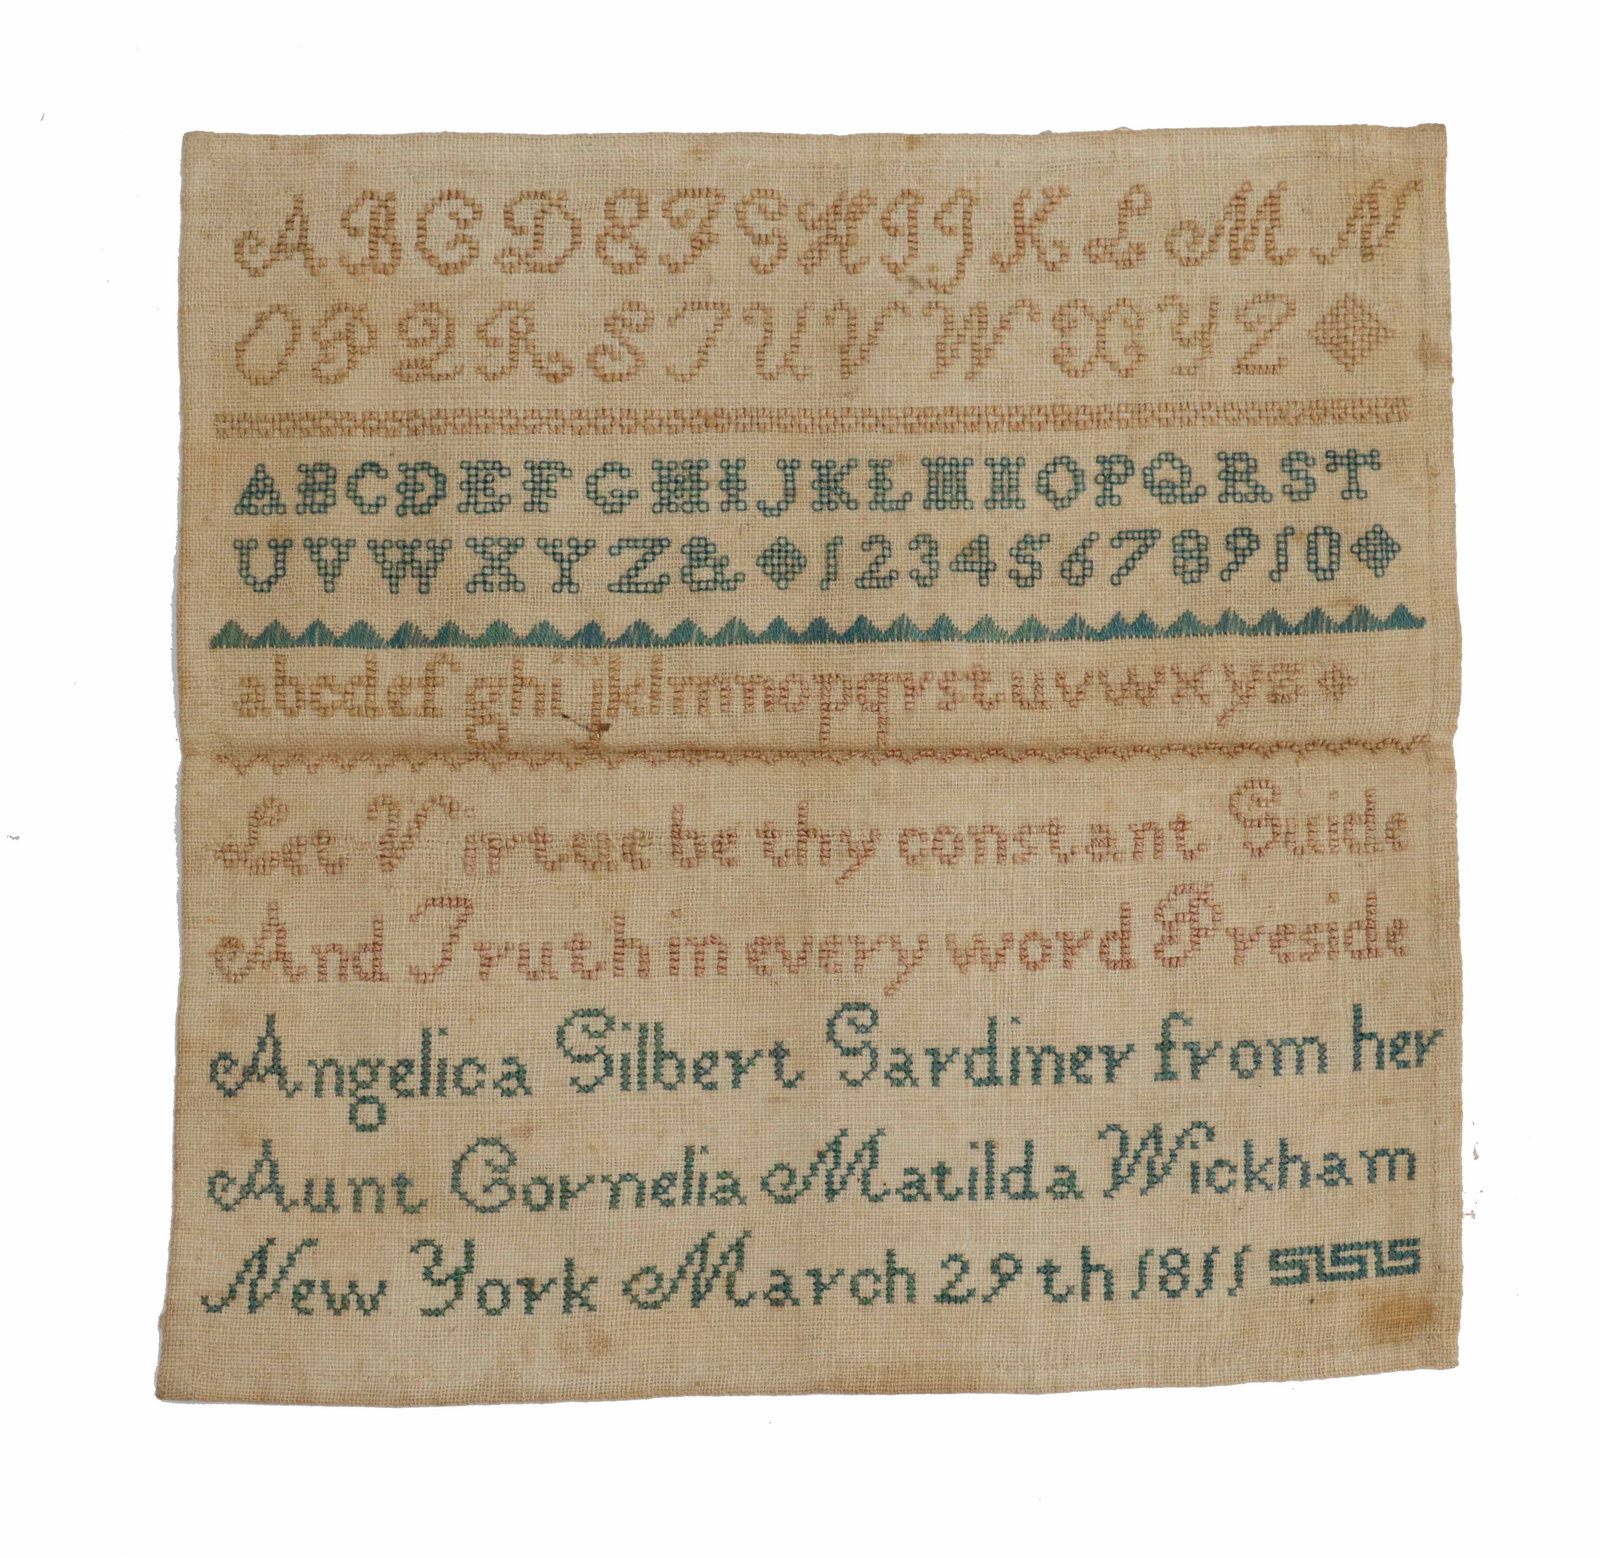 A B C D E F G H I J K L M N
O P Q R S T U V W X Y Z
A B C D E F G H I J K L M N O P Q R S T
U V W X Y Z & 1 2 3 4 5 6 7 8 9 10
a b c d e f g h i j k l m n o p q r s t u v w x y z
Let Virtue be thy constant Guide
And Truth in every word Preside
Angelica Gilbert Gardiner from her
Aunt Cornelia Matilda Wickham
New York March 29th 1811